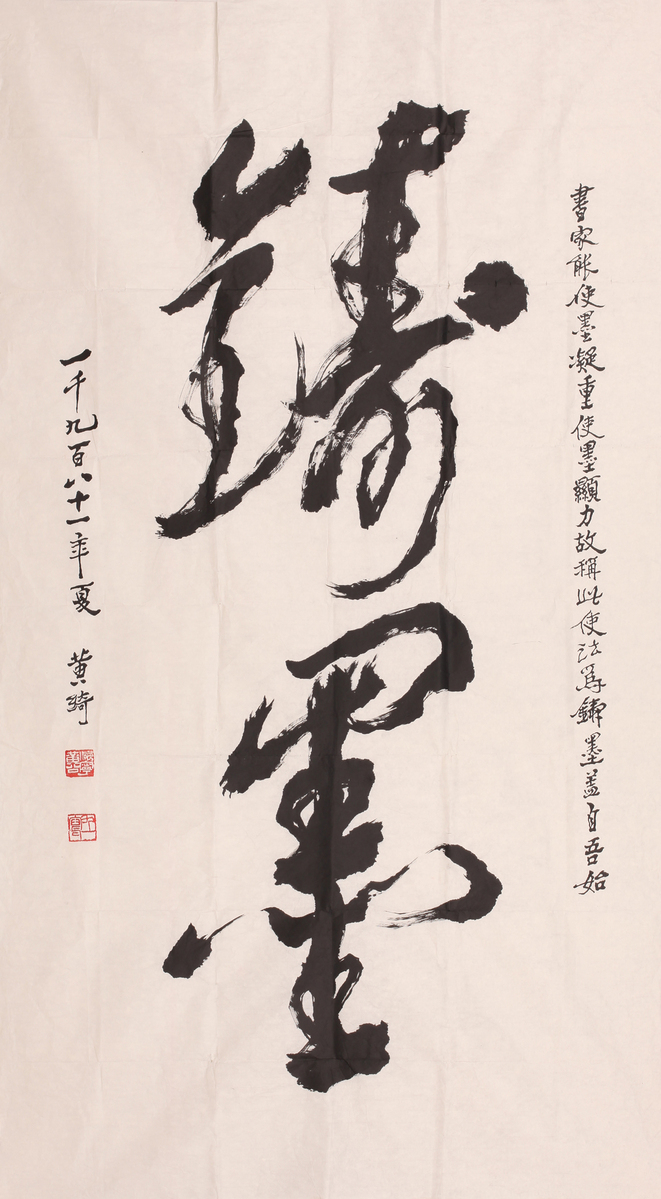 書家能使墨凝重使墨顯力故稱此使法爲鑄墨蓋自吾始
鑄墨
一千九百八十一年夏 黄綺